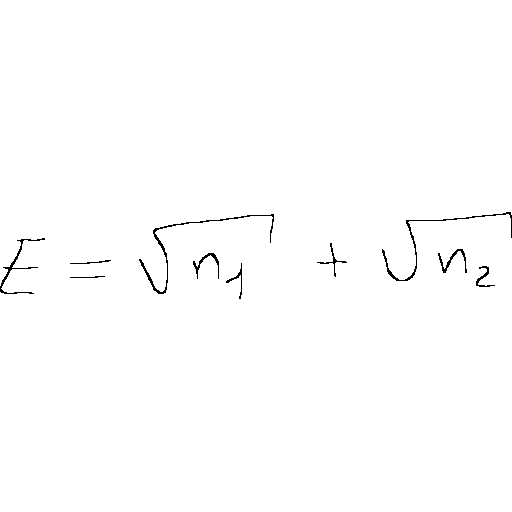 E = √n₁ + √n₂